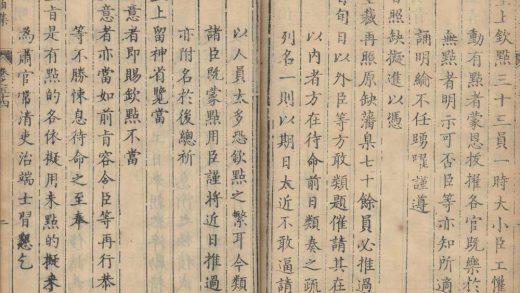 上欽點三十三員一時大小臣工懽
動有點者蒙恩拔擢各官既樂於
無點者明示可否臣等亦知所適
誦明綸不任踴躍謹遵
旨照缺擬進以憑
裁再照原缺藩臬七十餘員必推過
旬日以外臣等方敢類題催請其在
以內者方在待命前日類奏之疏
列名一則以期日太近不敢逼請
以人員太多恐欽點之繁耳今類
諸臣既蒙點用臣謹將近日推過
亦附名於後總祈
上留神省覽當
意者即賜欽點不當
意者亦當如前肯容令臣等再行恭
等不勝悚息待命之至奉
旨是有點的各依擬用未點的擬來
為肅官常清吏治端士習懇乞
集
二